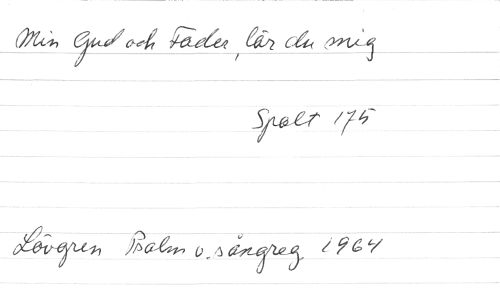 Min Gud och Fader, lär du mig
Spalt 175
Lövgren Psalm o. sångreg. 1964